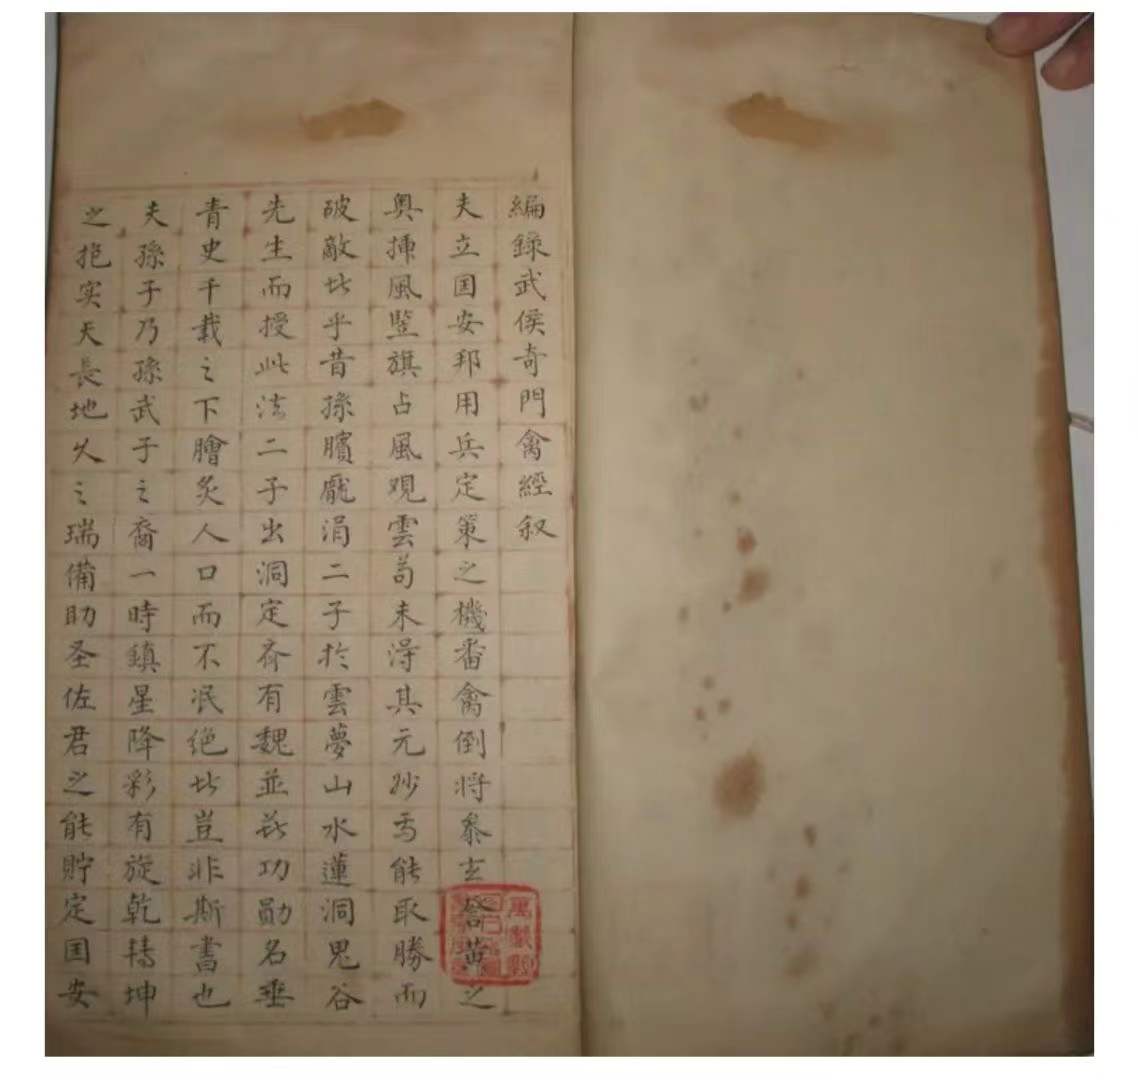 編錄武侯奇門禽經叙
夫立国安邦用兵定策之機番禽倒将叅玄黄之
奥揮風竪旗占風观雲苟未淂其元妙焉能取勝而
破敵此乎昔孫臏龐涓二子於雲夢山水蓮洞鬼谷
先生而授此法二子出洞定齐有魏並兹功勋名垂
青史千载之下膾炙人口而不泯绝此豈非斯書也
夫孫子乃孫武子之裔一時鎮星降彩有旋乾转坤
之抱实天長地久之瑞備助圣佐君之能貯定国安